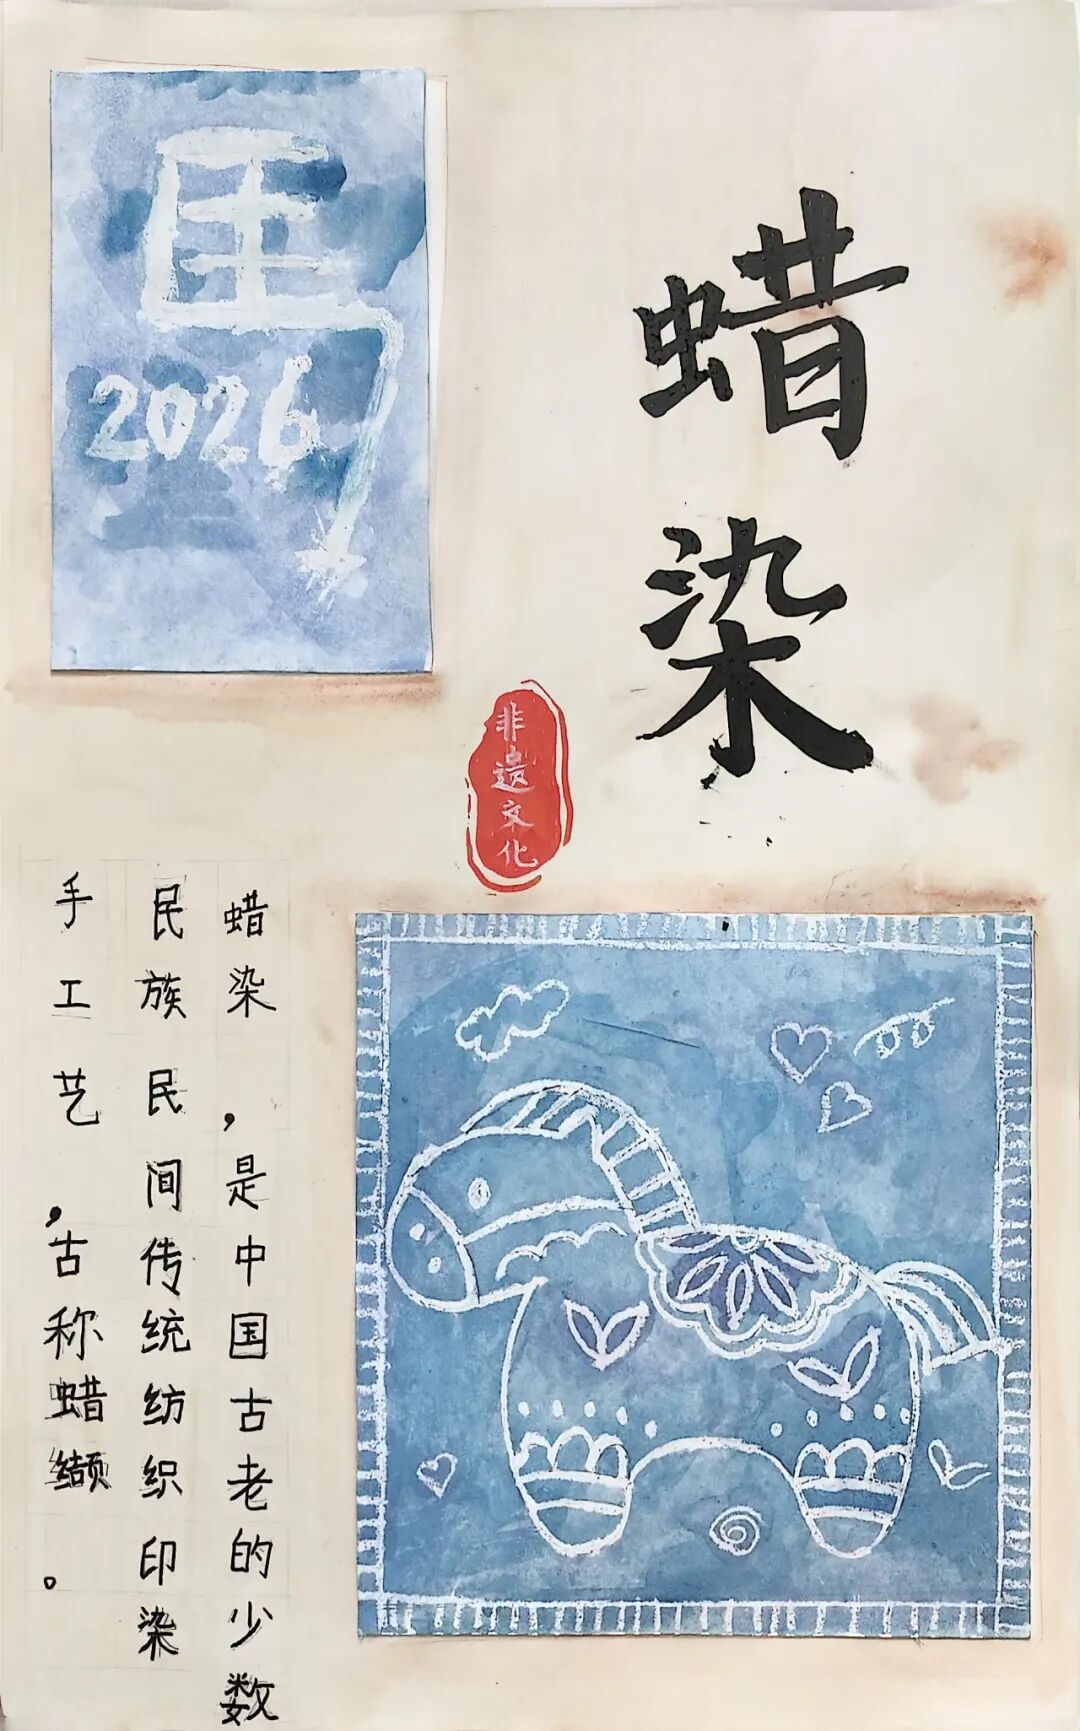 蜡染
馬
2026
非遗文化
蜡染，是中国古老的少数
民族民间传统纺织印染
手工艺，古称蜡缬。